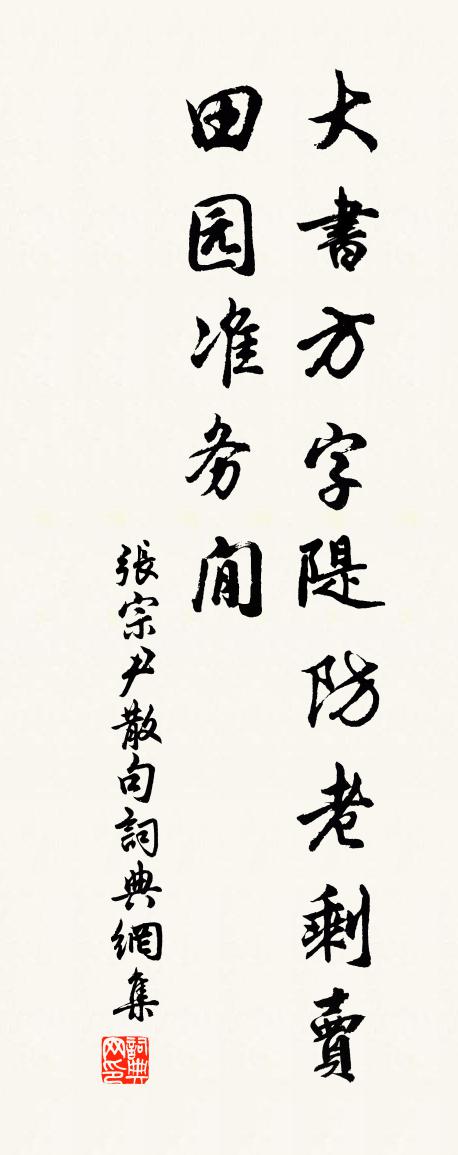 大書方字隄防老剩賣
田园准务閒
張宗尹散句詞典網集
詞典网印